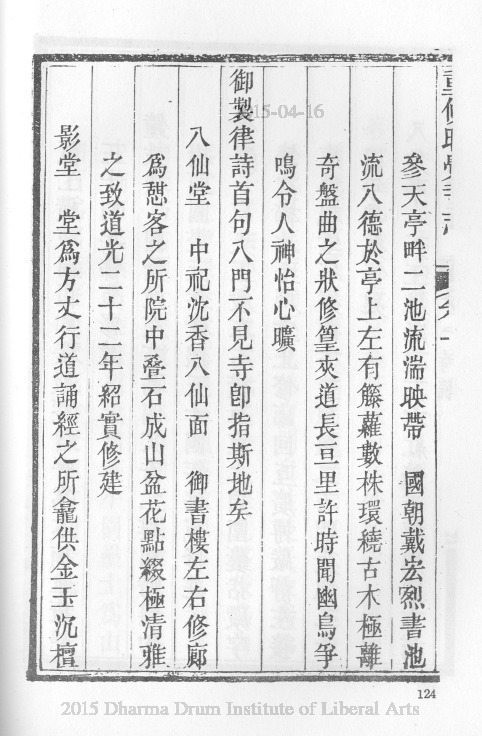 重修昭覺寺志
參天亭畔二池流湍映帶　國朝戴宏烈書池
流八德於亭上左有籐蘿數株環繞古木極離
奇盤曲之狀修篁夾道長亘里許時聞幽鳥爭
鳴令人神怡心曠
御製律詩首句入門不見寺卽指斯地矣
八仙堂　中祀沈香八仙面　御書樓左右修廊
爲憇客之所院中叠石成山盆花點綴極清雅
之致道光二十二年紹實修建
影堂　堂爲方丈行道誦經之所龕供金玉沉檀
15-04-16
124
2015 Dharma Drum Institute of Liberal Arts